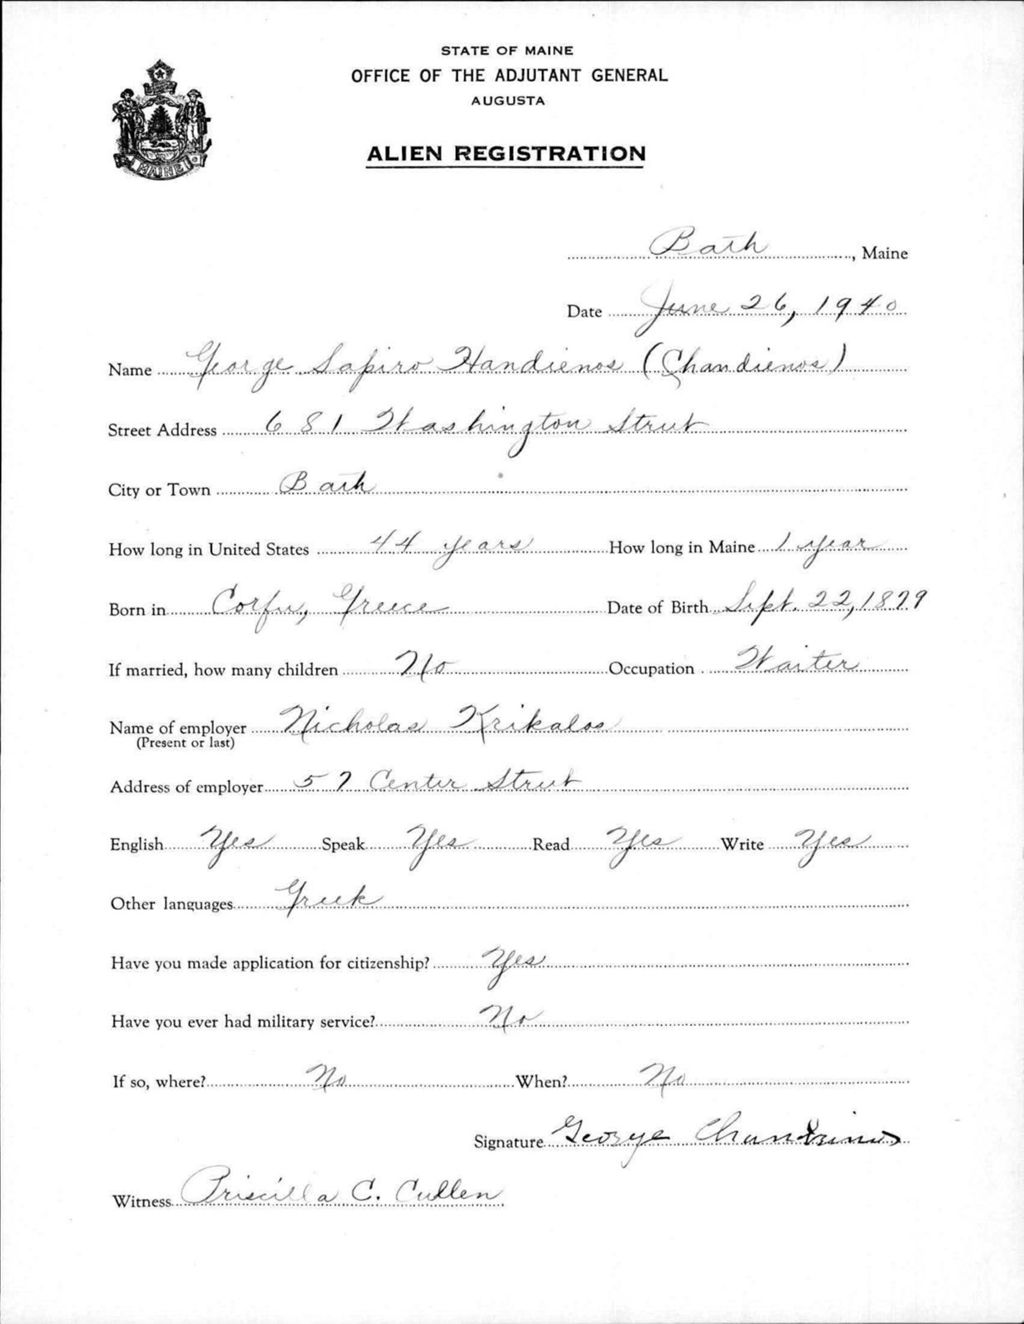 STATE OF MAINE
OFFICE OF THE ADJUTANT GENERAL
AUGUSTA
ALIEN REGISTRATION
MAINE
Bath, Maine
Date June 26, 1940
Name George Sapiro Handienos (Chandienos)
Street Address 681 Washington Street
City or Town Bath
How long in United States 44 years How long in Maine 1 year
Born in Corfu, Greece Date of Birth Sept. 22, 1879
If married, how many children No Occupation Waiter
Name of employer Nicholas Krikalos
(Present or last)
Address of employer 57 Center Street
English Yes Speak Yes Read Yes Write Yes
Other languages Greek
Have you made application for citizenship? Yes
Have you ever had military service? No
If so, where? No When? No
Signature George
Witness Priscilla C. Cullen